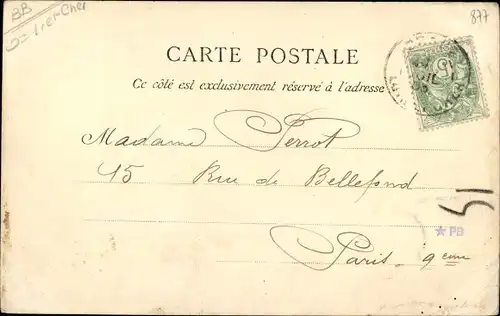 BB
877
CARTE POSTALE
Ce côté est exclusivement réservé à l'adresse
Madame Perrot
45 Rue de Bellefond
51
★ PB
Paris. 9eme